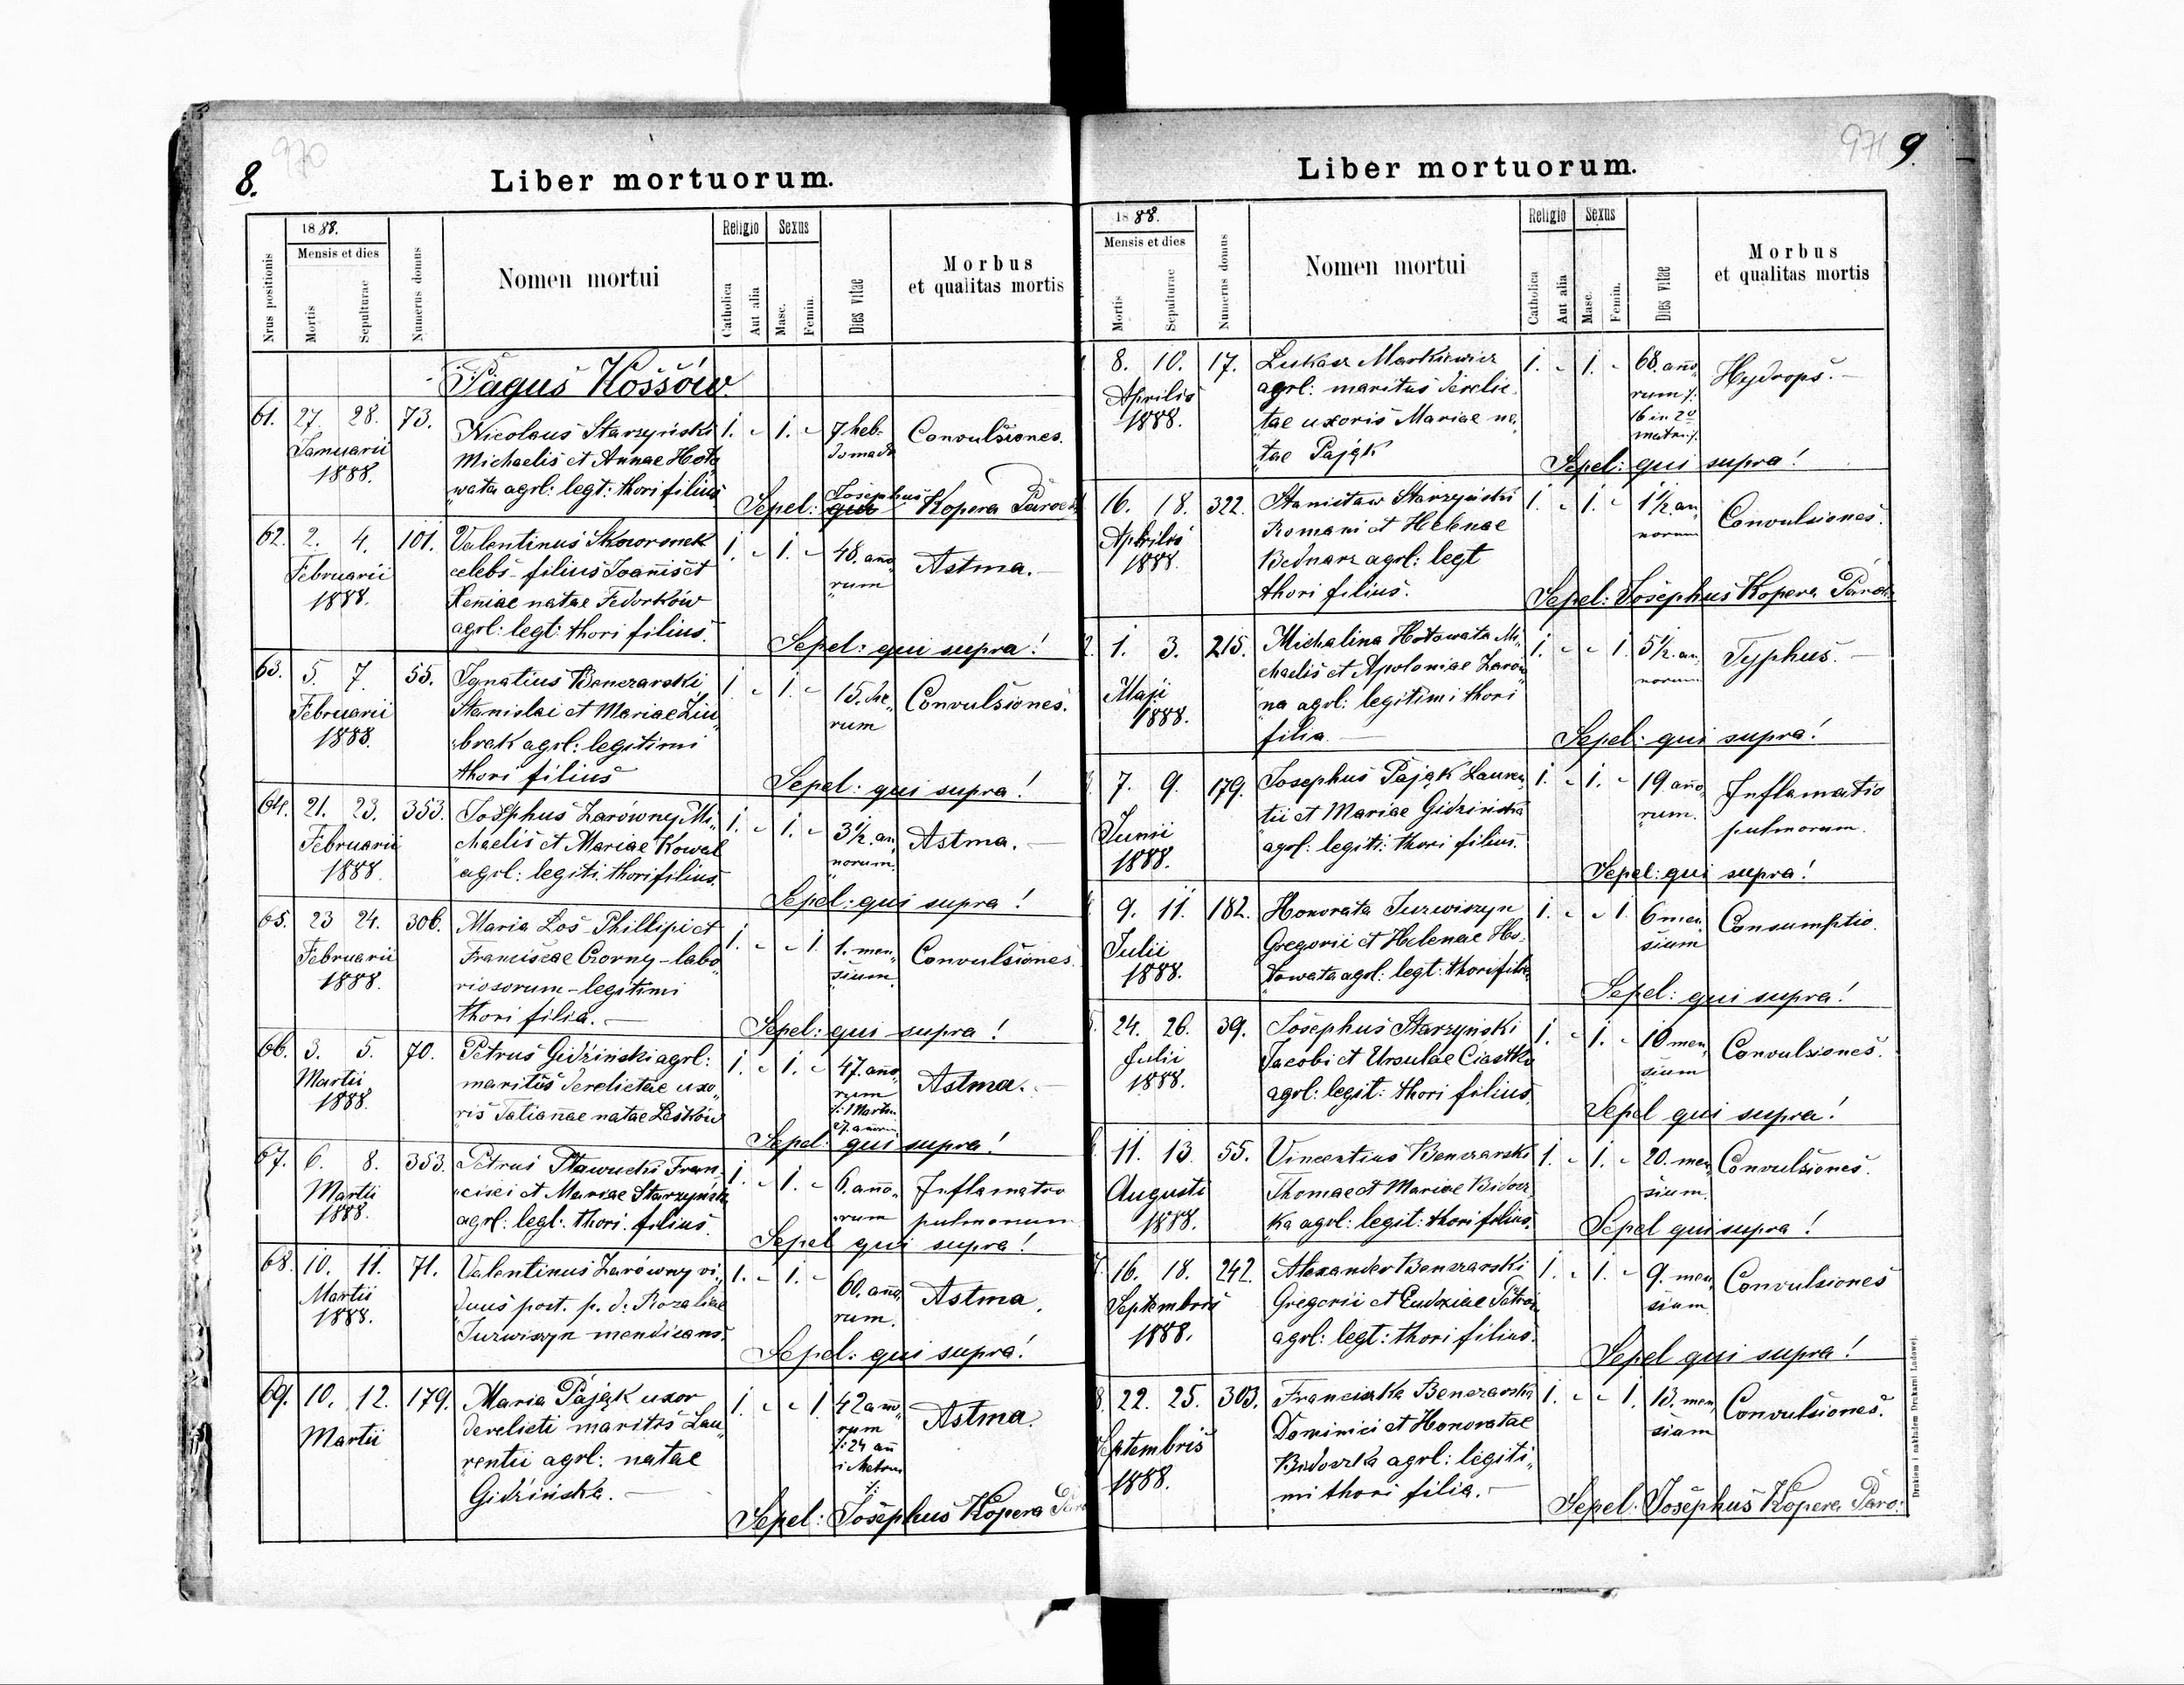 8.
970
Liber mortuorum.
Nrus positionis
1888.
Mensis et dies
Mortis
Sepulturae
Numerus domus
Nomen mortui
Religio
Catholica
Aut alia
Sexus
Masc.
Femin.
Dies vitae
Morbus
et qualitas mortis
Pagus Kossów.
61. 27. 28. 73. Nicolaus Starzyński 1. - 1. - 7 heb- Convulsiones.
Januarii Michaelis et Annae Hoto domada
1888. wata agrl: legt: thori filius
Sepel: qui Josephus Kopera Paroch
62. 2. 4. 101. Valentinus Skowronek 1. - 1. - 48. ano Astma.
Februarii celebs - filius Joanis et rum
1888. Xeniae natae Fedorków
agrl: legt: thori filius.
Sepel: qui supra!
63. 5. 7. 55. Ignatius Benczarski 1. - 1. - 15. die Convulsiones.
Februarii Stanislai et Mariae Ziu rum
1888. brak agrl: legitimi
thori filius
Sepel: qui supra!
64. 21. 23. 353. Josephus Zarówny Mi 1. - 1. - 3 1/2. an Astma.
Februarii chaelis et Mariae Kowal norum.
1888. agrl: legiti. thori filius.
Sepel: qui supra!
65. 23 24. 306. Maria Loś Phillipi et 1. - - 1. 1. men Convulsiones.
Februarii Franciscae Czorny - labo sium.
1888. riosorum - legitimi
thori filia.
Sepel: qui supra!
66. 3. 5. 70. Petrus Gidziński agrl: 1. - 1. - 47. ano Astma.
Martii maritus derelictae uxo rum
1888. ris Tatianae natae Leśków
Sepel: qui supra!
67. 6. 8. 353. Petrus Pławucki Fran 1. - 1. - 6. ano Inflamatio
Martii cisci et Mariae Starzyńsk rum pulmonum
1888. agrl: legt: thori filius.
Sepel qui supra!
68. 10. 11. 71. Valentinus Zarówny vi 1. - 1. - 60. ano Astma.
Martii duus post. p. d: Rozaliae rum.
1888. Jurwiszyn mendicans
Sepel: qui supra!
69. 10. 12. 179. Maria Pająk uxor 1. - - 1 42 ano Astma.
Martii derelicti maritis Lau rum
rentii agrl: natae /:24 an
Gidzińska. i Matrim
:/
Sepel: Josephus Kopera Paro
9.
971
Liber mortuorum.
1888.
Mensis et dies
Mortis
Sepulturae
Numerus domus
Nomen mortui
Religio
Catholica
Aut alia
Sexus
Masc.
Femin.
Dies vitae
Morbus
et qualitas mortis
8. 10. 17. Lukasz Markiewicz 1. - 1. - 68. ano Hydrops.
Aprilis agrl: maritus derelic rum /:
1888. tae uxoris Mariae na 16 in 2o
tae Pająk matri:/
Sepel: qui supra!
16. 18. 322. Stanisław Starzyński 1. - 1. - 1 1/2. an Convulsiones.
Aprilis Romani et Helenae norum
1888. Bednarz agrl: legt
thori filius.
Sepel: Josephus Kopera Paroch
1. 3. 215. Michalina Hotowata Mi 1. - - 1. 5 1/2. an Typhus.
Maji chaelis et Apoloniae Zarów norum
1888. na agrl: legitimi thori
filia.
Sepel: qui supra!
7. 9. 179. Josephus Pająk Lauren 1. - 1. - 19 ano Inflamatio
Junii tii et Mariae Gidzińska rum. pulmorum.
1888. agrl: legiti: thori filius.
Sepel: qui supra!
9. 11. 182. Honorata Jurwiszyn 1. - - 1. 6 men Consumptio.
Julii Gregorii et Helenae Ho sium
1888. towata agrl: legt: thori filia
Sepel: qui supra!
24. 26. 39. Josephus Starzyński 1. - 1. - 10 men Convulsiones.
Julii Jacobi et Ursulae Ciastko sium
1888. agrl: legit: thori filius.
Sepel qui supra!
11. 13. 55. Vincentius Benczarski 1. - 1. - 20. men Convulsiones.
Augusti Thomae et Mariae Bidocz sium.
1888. ka agrl: legit: thori filius.
Sepel qui supra!
16. 18. 242. Alexander Benczarski 1. - 1. - 9. men Convulsiones
Septembris Gregorii et Eudoxiae Petrów sium
1888. agrl: legt: thori filius.
Sepel qui supra!
22. 25. 303. Franciszka Benczarska 1. - - 1. 13. men Convulsiones.
Septembris Dominici et Honoratae sium
1888. Bidoczka agrl: legiti
mi thori filia.
Sepel. Josephus Kopera Paro.
Drukiem i nakładem Drukarni Ludowej.